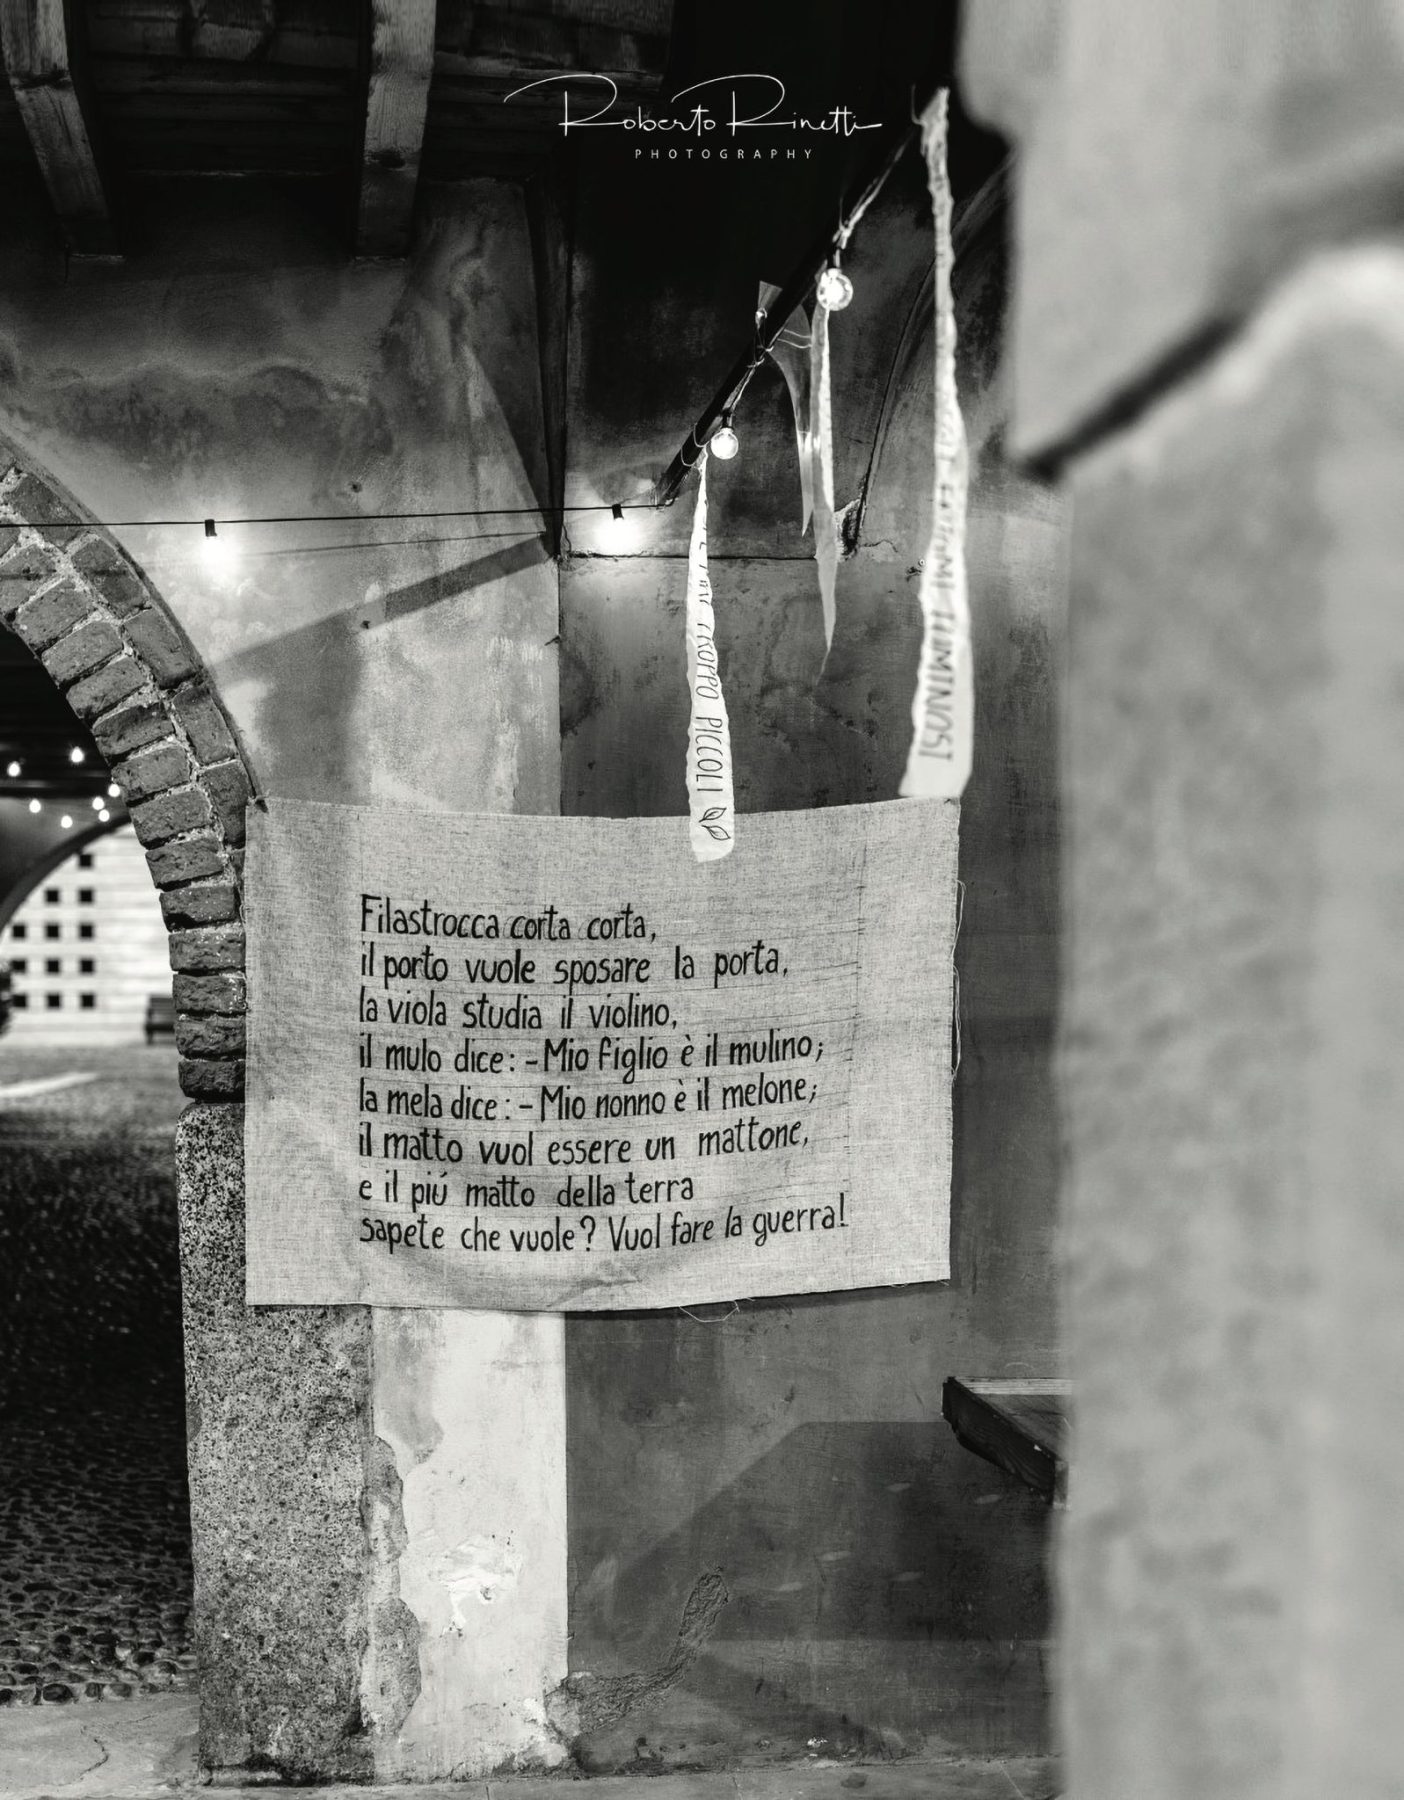 Roberto Rinetti
PHOTOGRAPHY
TROPPO PICCOLI
LUMINOSI
Filastrocca corta corta,
il porto vuole sposare la porta,
la viola studia il violino,
il mulo dice: - Mio figlio è il mulino;
la mela dice: - Mio nonno è il melone;
il matto vuol essere un mattone,
e il piú matto della terra
sapete che vuole? Vuol fare la guerra!